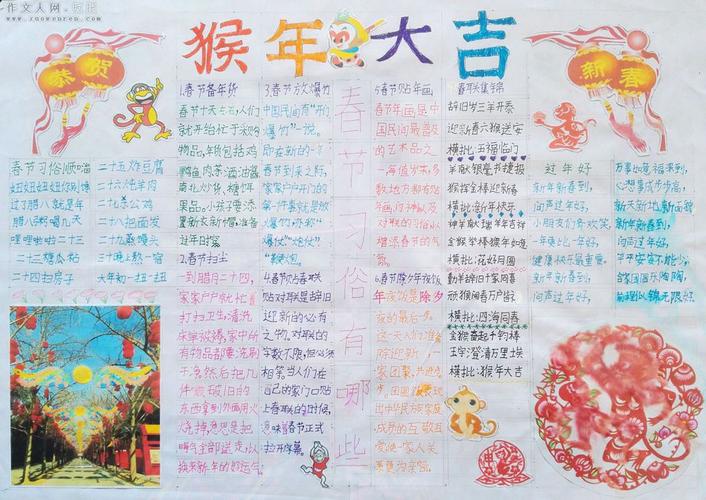 作文人网
www.zuowenren.com
猴年大吉
恭贺
新春
春节习俗有哪些
春节习俗顺口溜
过了腊八就是年
腊八粥喝几天
哩哩啦啦二十三
二十三糖瓜粘
二十四扫房子
二十五炸豆腐
二十六炖羊肉
二十七杀公鸡
二十八把面发
二十九蒸馒头
三十晚上熬一宿
大年初一扭一扭
1.春节备年货
春节十天左右,人们
就开始忙于采购
物品,年货包括鸡
鸭鱼肉茶酒油酱
南北炒货、糖饵
果品。小孩子要添
置新衣新帽,准备
过年时穿
2.春节扫尘
一到腊月二十四,
家家户户就忙着
打扫卫生,清洗
床单被褥,家中所
有物品都要洗刷
干净然后把几
件破旧的
东西拿到外面用火
烧掉意思是要
晦气全部送走,以
换来新年的好运气
3.春节放爆竹
中国民间有“开门
爆竹”一说。
即在新的一年
春节到来之际,
家家户户开门的
第一件事就是放
爆竹,亦称“
爆仗”“炮仗”
“鞭炮。
4.春节贴春联
贴对联是辞旧
迎新的必有
之物。对联的
字数不限,但必须
相等当人们在
自己的家门口贴
上春联的时候,
意味着春节正式
拉开序幕。
5.春节贴年画
春节年画是中
国民间最普及
的艺术品之一
数地方都有贴
年画,门神以及
对联的习俗以
增添春节的气
氛。
6.春节除夕年夜饭
年夜饭是除夕
夜的最后一步。
这一天人们准备
除旧迎新,一家
团聚,共进晚
出中华民族家庭
成员的互敬互
爱使一家人关
系更为亲密。
春联集锦
辞旧岁三羊开泰
迎新春六猴送安
横批:五福临门
羊献银毫书捷报
猴挥金棒迎新春
横批:新年快乐
神羊献瑞羊年吉祥
金猴举棒猴年如意
横批:花好月圆
勤羊辞旧千家喜
顽猴闹春万户游
横批:四海同春
金猴奋起千钧棒
玉宇澄清万里埃
横批:猴年大吉
过年好
新年新春到,
向声过年好,
小朋友们齐欢笑,
一年更比一年好,
健康快乐最重要。
新年新春到,
向声过年好,
万事如意福满到,
心想事成步步高,
新天新地新面貌
新年新春到,
向声过年好,
平平安安不能少,
合家团圆乐陶陶,
前程似锦无限好。